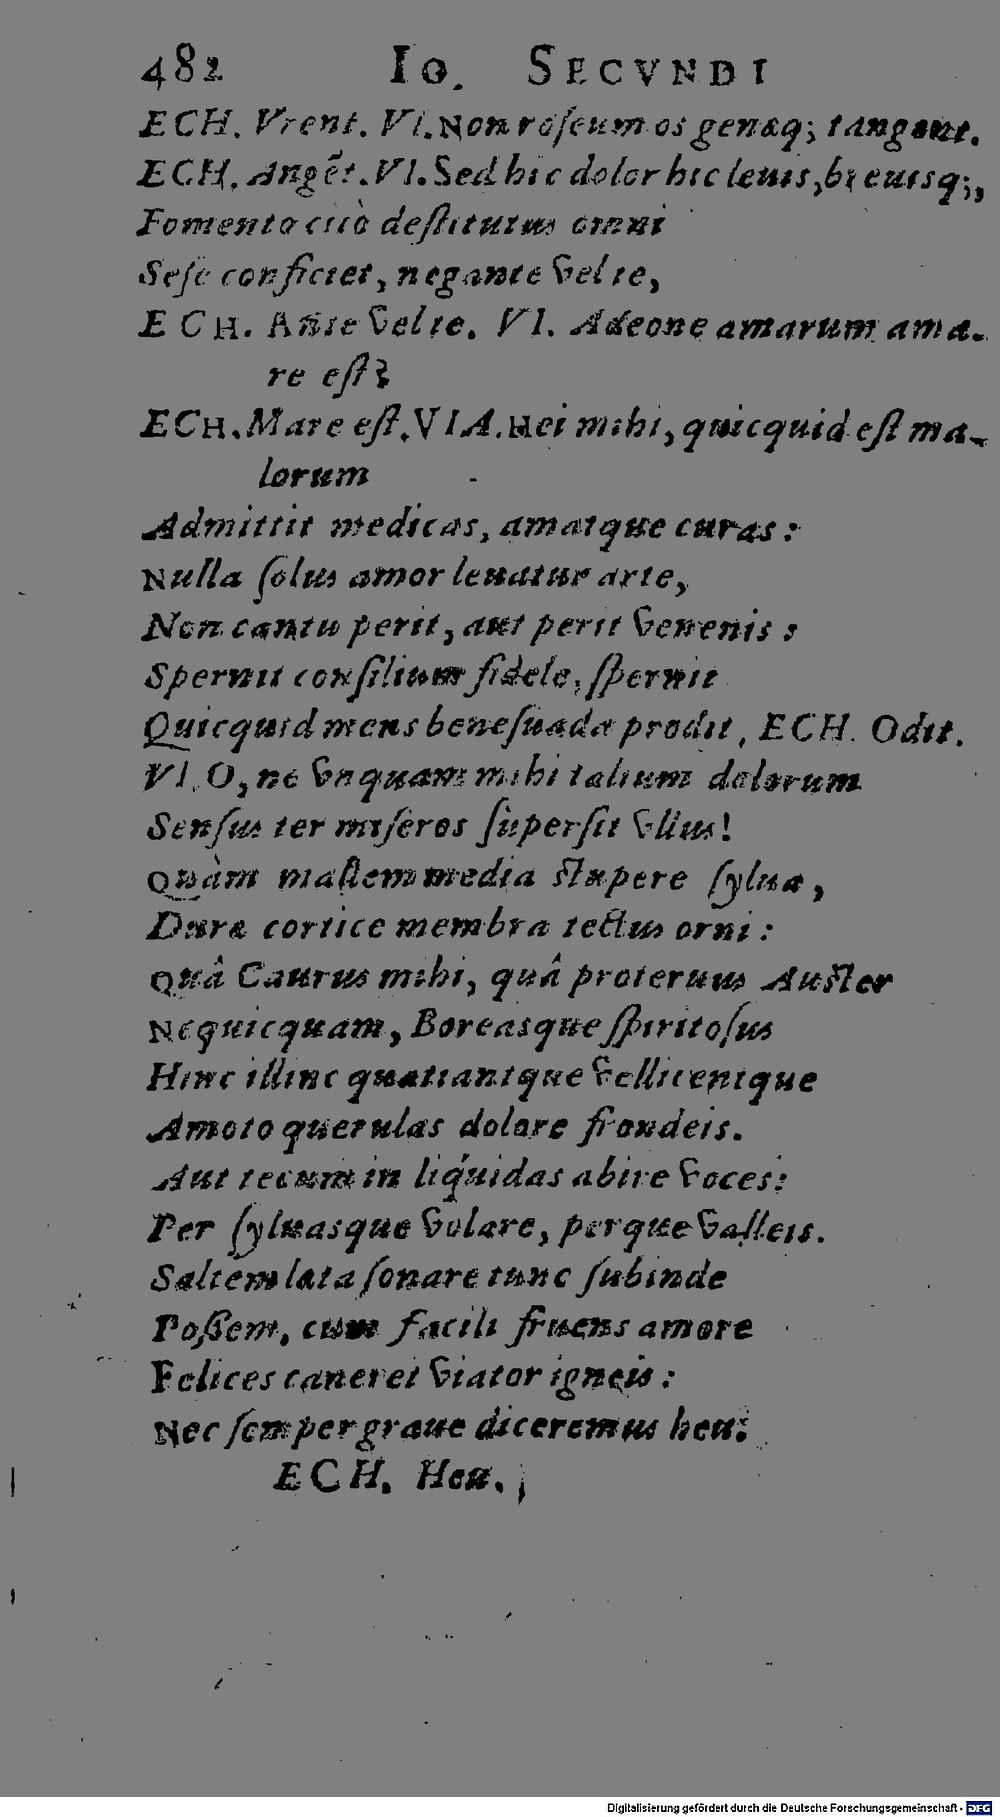 482 IO. SECVNDI
ECH. Vrent. VI. Non roſeum os genæq; tangent.
ECH. Angẽt. VI. Sed hic dolor hic leuis, breuisq;,
Fomento citò deſtitutus omni
Seſe conficiet, negante velle,
ECH. Ante velle. VI. Adeone amarum ama-
re eſt?
ECH. Mare eſt. VIA. Hei mihi, quicquid eſt ma-
lorum
Admittit medicas, amatque curas:
Nulla ſolus amor leuatur arte,
Non cantu perit, aut perit venenis:
Spernit conſilium fidele, ſpernit
Quicquid mens beneſuada prodit, ECH. Odit.
VI. O, ne vnquam mihi talium dolorum
Senſus ter miſeros ſuperſit vllus!
Quàm mallem media ſtupere ſylua,
Duræ cortice membra tectus orni:
Quâ Caurus mihi, quâ proteruus Auſter
Nequicquam, Boreasque ſpiritoſus
Hinc illinc quatiantque vellicentque
Amoto querulas dolore frondeis.
Aut tecum in liquidas abire voces:
Per ſyluasque volare, perque valleis.
Saltem læta ſonare tunc ſubinde
Poßem, cum facili fruens amore
Felices caneret viator igneis:
Nec ſemper graue diceremus heu:
ECH. Heu.
Digitalisierung gefördert durch die Deutsche Forschungsgemeinschaft - DFG